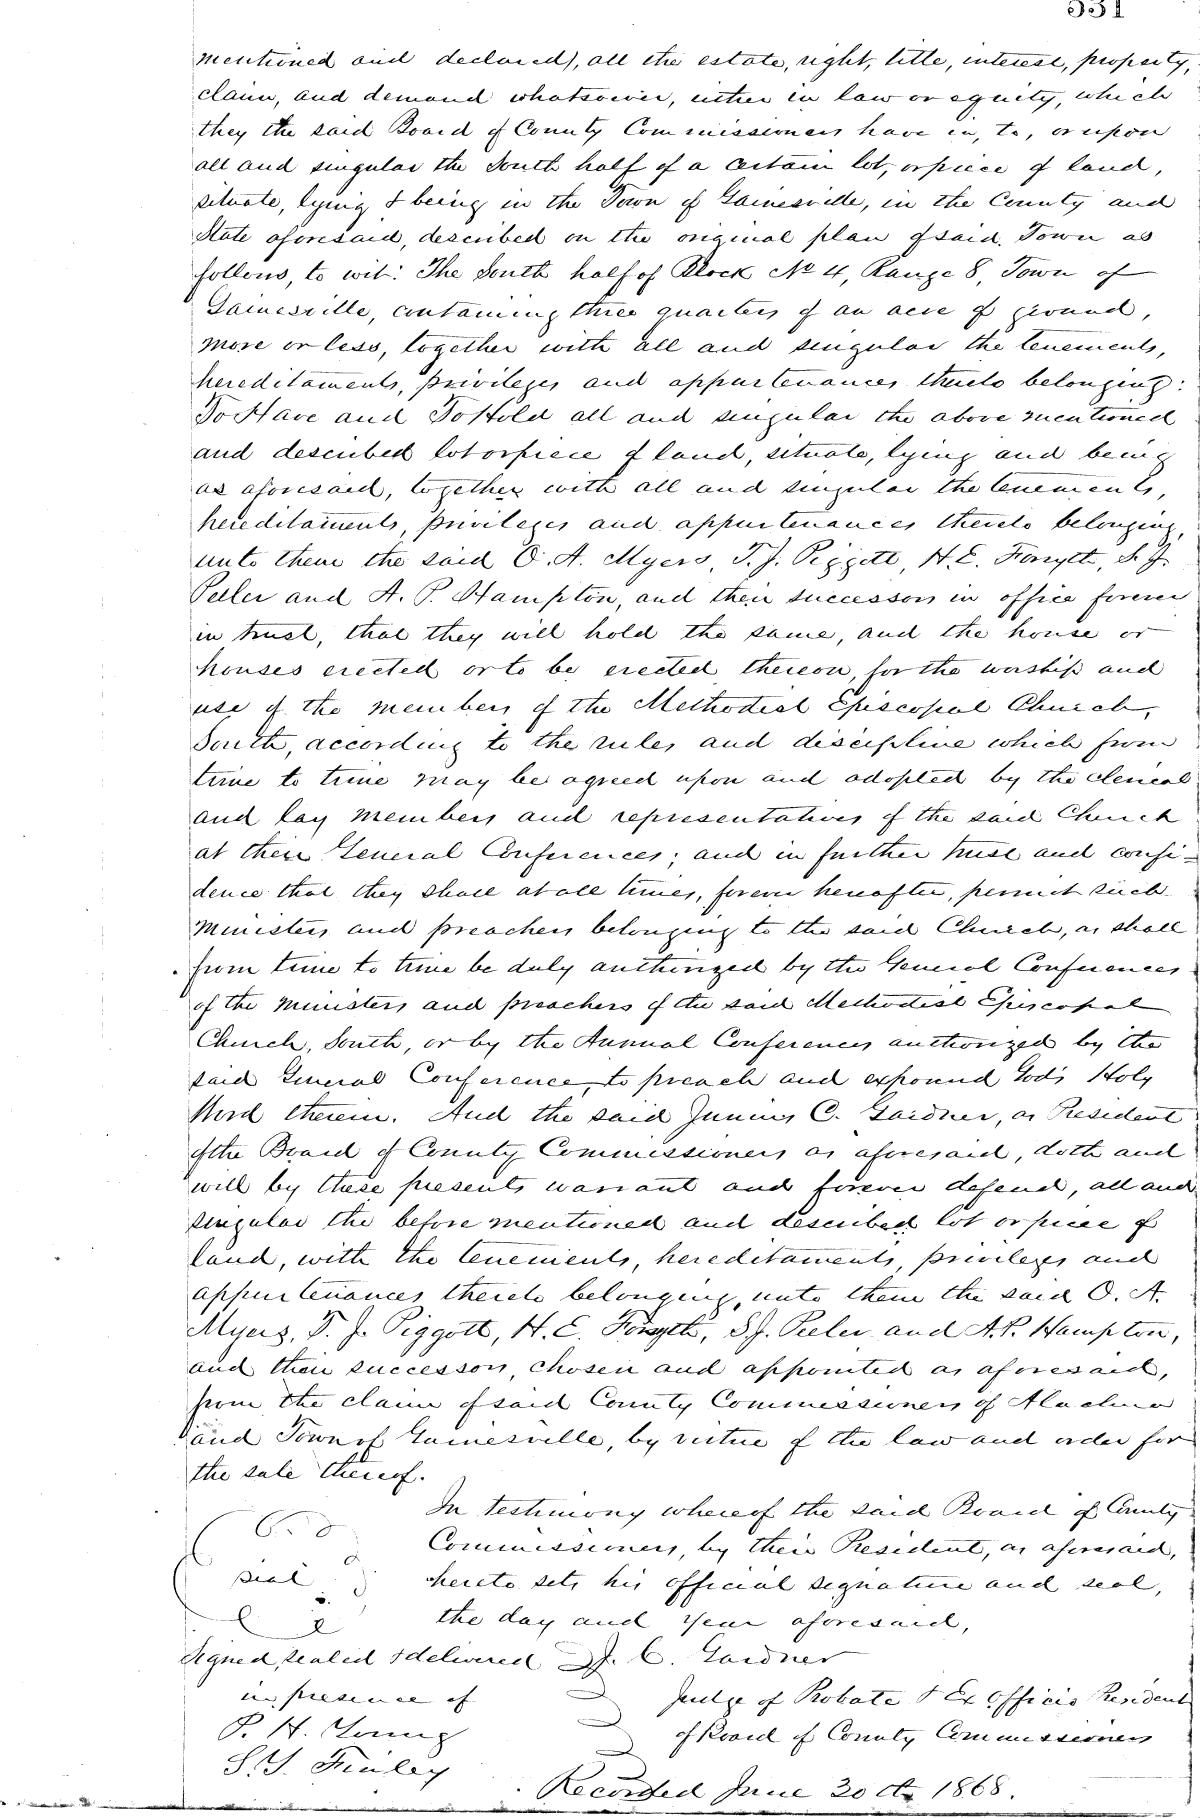 331
mentioned and declared), all the estate, right, title, interest, property,
claim, and demand whatsoever, either in law or equity, which
they the said Board of County Commissioners have in, to, or upon
all and singular the South half of a certain lot, or piece of land,
situate, lying & being in the Town of Gainesville, in the County and
State aforesaid, described on the original plan of said Town as
follows, to wit: The South half of Block No 4, Range 8, Town of
Gainesville, containing three quarters of an acre of ground,
more or less, together with all and singular the tenements,
hereditaments, privileges and appurtenances thereto belonging:
To Have and To Hold all and singular the above mentioned
and described lot or piece of land, situate, lying and being
as aforesaid, together with all and singular the tenements,
hereditaments, privileges and appurtenances thereto belonging,
unto them the said O. A. Myers, T. J. Piggott, H. E. Forsyth, S. J.
Peeler and A. P. Hampton, and their successors in office forever
in trust, that they will hold the same, and the house or
houses erected or to be erected thereon, for the worship and
use of the members of the Methodist Episcopal Church,
South, according to the rules and discipline which from
time to time may be agreed upon and adopted by the clerical
and lay members and representatives of the said Church
at their General Conferences; and in further trust and confi-
dence that they shall at all times, forever hereafter, permit such
ministers and preachers belonging to the said Church, as shall
from time to time be duly authorized by the General Conferences
of the ministers and preachers of the said Methodist Episcopal
Church, South, or by the Annual Conferences authorized by the
said General Conference, to preach and expound God's Holy
Word therein. And the said Junius C. Gardner, as President
of the Board of County Commissioners as aforesaid, doth and
will by these presents warrant and forever defend, all and
singular the before mentioned and described lot or piece of
land, with the tenements, hereditaments, privileges and
appurtenances thereto belonging, unto them the said O. A.
Myers, T. J. Piggott, H. E. Forsyth, S. J. Peeler and A. P. Hampton,
and their successors, chosen and appointed as aforesaid,
from the claim of said County Commissioners of Alachua
and Town of Gainesville, by virtue of the law and order for
the sale thereof.
In testimony whereof the said Board of County
Commissioners, by their President, as aforesaid,
seal hereto sets his official signature and seal,
the day and year aforesaid,
Signed, sealed & delivered J. C. Gardner
in presence of Judge of Probate & Ex Officio President
P. H. Young of Board of County Commissioners
S. Y. Finley
Recorded June 30th 1868.